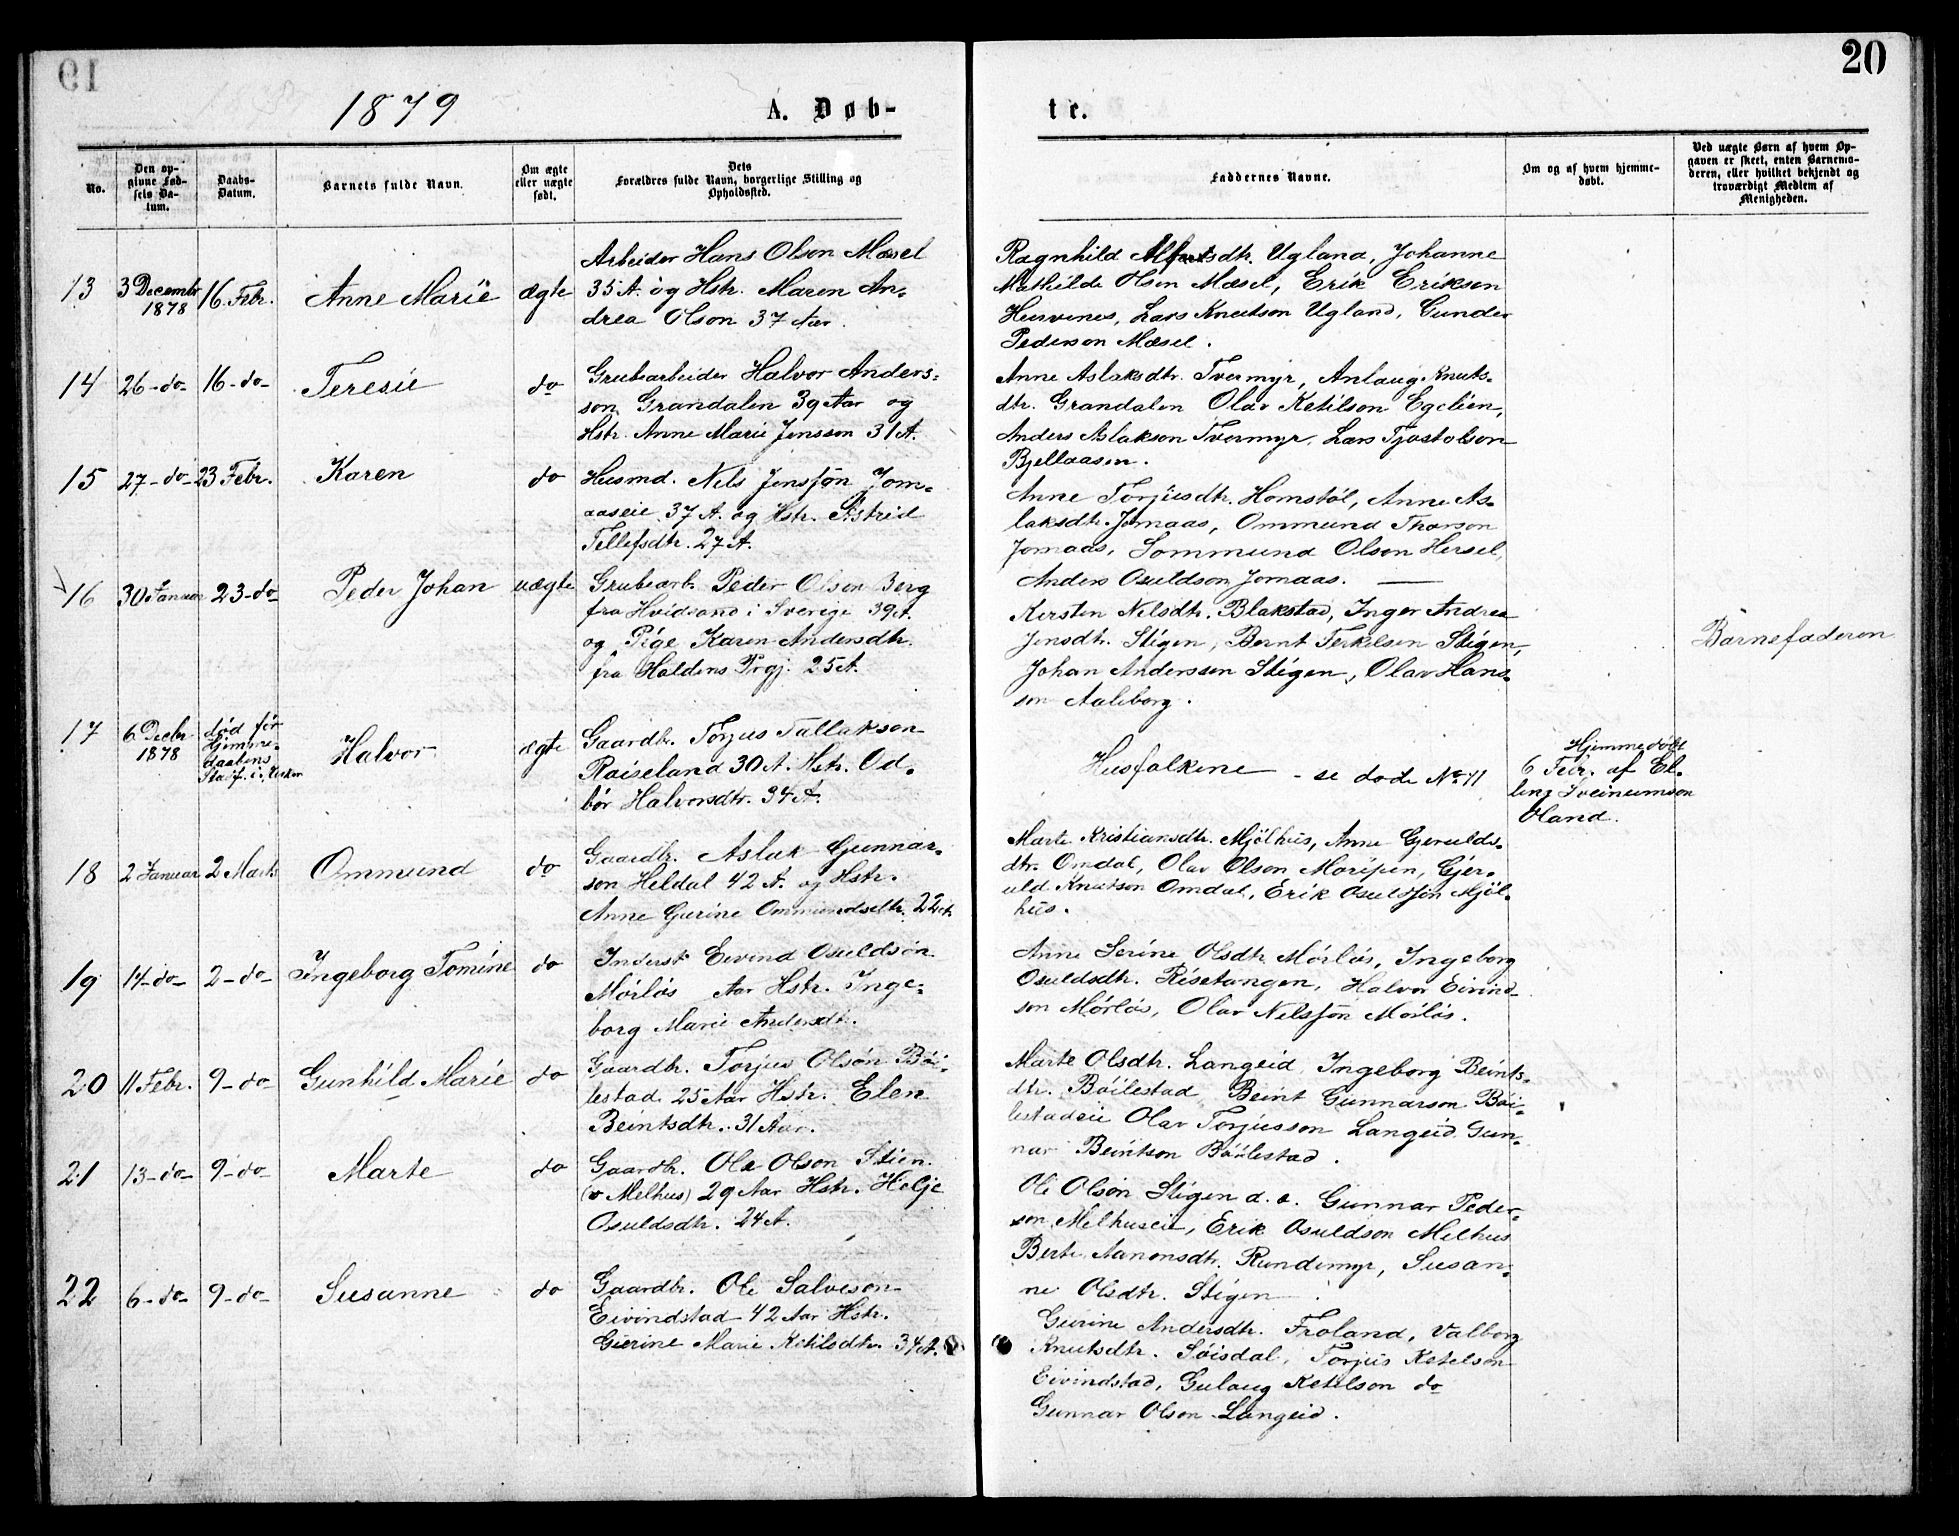 20
1879
A. Døb-
te.
No.
Den op-
givne Fød-
sels Da-
tum.
Daabs-
Datum.
Barnets fulde Navn.
Om ægte
eller uægte
født.
Dets
Forældres fulde Navn, borgerlige Stilling og
Opholdssted.
Faddernes Navne.
Om og af hvem hjemme-
døbt.
Ved uægte Børn af hvem Op-
gaven er skeet, enten Barnemo-
deren, eller hvilket bekjendt og
troværdigt Medlem af
Menigheden.
13
3 Decembr
1878
16. Febr.
Anne Marie
ægte
Arbeider Hans Olson Mæsel
35 A. og Hstr. Maren An-
drea Olson 37 Aar.
Ragnhild Ugland, Johanne
Mathilde Olsen Mæsel, Erik Erikson
Hurvenes, Lars Knutson Ugland, Gunder
Pederson Mæsel.
14
26-do-
16-do-
Teresie
do
Grubearbeider Halvor Anders-
son Grandalen 39 Aar og
Hstr. Anne Marie Jensson 31 A.
Anne Aslaksdtr. Tvermyr, Anlaug Knuts-
dtr. Grandalen Olav Ketilson Egelien,
Anders Aslakson Tvermyr, Lars Tjostolson
Bjellaasen.
15
27-do-
23 Febr.
Karen
do
Husmd. Nils Jensson Jom-
aaseie 37 A. og Hstr. Astrid
Tellefsdtr. 27 A.
Anne Torjusdtr. Homstøl, Anne As-
laksdtr. Jomaas, Ommund Thorson
Jomaas, Sommund Olson Hersel,
Anders Osuldson Jomaas.
16
30 Januar
23-do-
Peder Johan
uægte
Grubearb. Peder Olsen Berg
fra Hvidsand i Sverige 39 A.
og Pige Karen Andersdtr.
fra Haldens Prgj. 25 A.
Kersten Nilsdtr. Blakstad, Inger Andrea
Jensdtr. Stigen, Bernt Terkelsen Stigen,
Johan Anderssen Stigen, Olav Hans-
son Aaleborg.
Barnefaderen
17
6 Decbr
1878
død før
Hjemme-
daabens
Stadf. i Kirken
Halvor
ægte
Gaardbr. Torjus Tallakson
Raiseland 30 A. Hstr. Od-
bør Halvorsdtr. 34 A.
Husfolkene - se døde No 11
Hjemmedøbt
6 Febr. af El-
ling Sveinumson
Oland.
18
2 Januar
2 Marts
Ommund
do
Gaardbr. Aslak Gunnar-
son Heldal 42 A. og Hstr.
Anne Gurine Ommundsdtr. 22 A.
Marte Kristiansdtr. Mjølhus, Anne Gjerulds-
dtr. Omdal, Olav Olson Moripen, Gjer-
uld Knutson Omdal, Erik Osuldson Mjøl-
hus.
19
14-do-
2-do-
Ingeborg Tomine
do
Inderst Eivind Osuldson
Mórløs Aar Hstr. Inge-
borg Marie Andersdtr.
Anne Serine Olsdtr. Mórløs, Ingeborg
Osuldsdtr. Risetangen, Halvor Eivind-
son Mórløs, Olav Nilsson Mórløs.
20
11 Febr.
9-do-
Gunhild Marie
do
Gaardbr. Torjus Olson Bøi-
lestad 25 Aar Hstr. Elen
Beintsdtr. 31 Aar.
Marte Olsdtr. Langeid, Ingeborg Beints-
dtr. Bøilestad Beint Gunnarson Bøi-
lestadeie Olav Torjusson Langeid, Gun-
nar Beintson Bøilestad.
21
13-do-
9-do-
Marte
do
Gaardbr. Ole Olson Stien
(v Melhus) 29 Aar Hstr. Helje
Osuldsdtr. 24 A.
Ole Olson Stigen d. e. Gunnar Peder-
son Melhuseie, Erik Osuldson Melhus
Berte Aanonsdtr. Rundemyr, Susan-
ne Olsdtr. Stigen.
22
6-do-
9-do-
Susanne
do
Gaardbr. Ole Salveson
Eivindstad 42 Aar Hstr.
Gurine Marie Ketilsdtr. 34 A.
Gurine Andersdtr. Froland, Valborg
Knutsdtr. Søisdal, Torjus Ketelson
Eivindstad, Gulaug Ketilson do
Gunnar Olson Langeid.